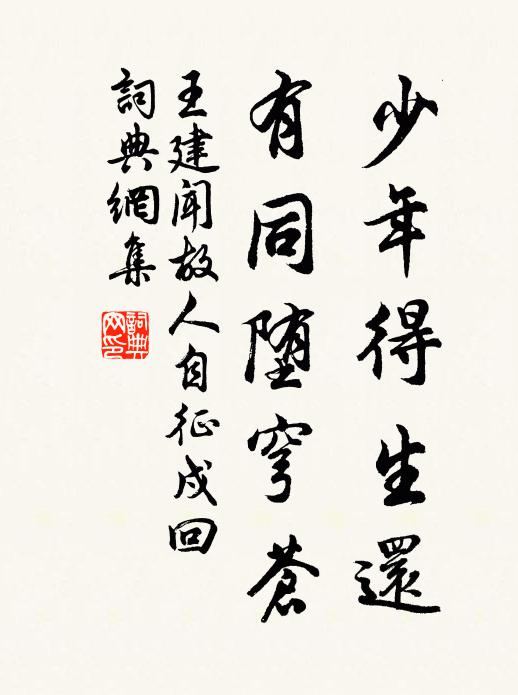 少年得生還
有同墮穹蒼
王建聞故人自征戍回
詞典網集
詞典
网印